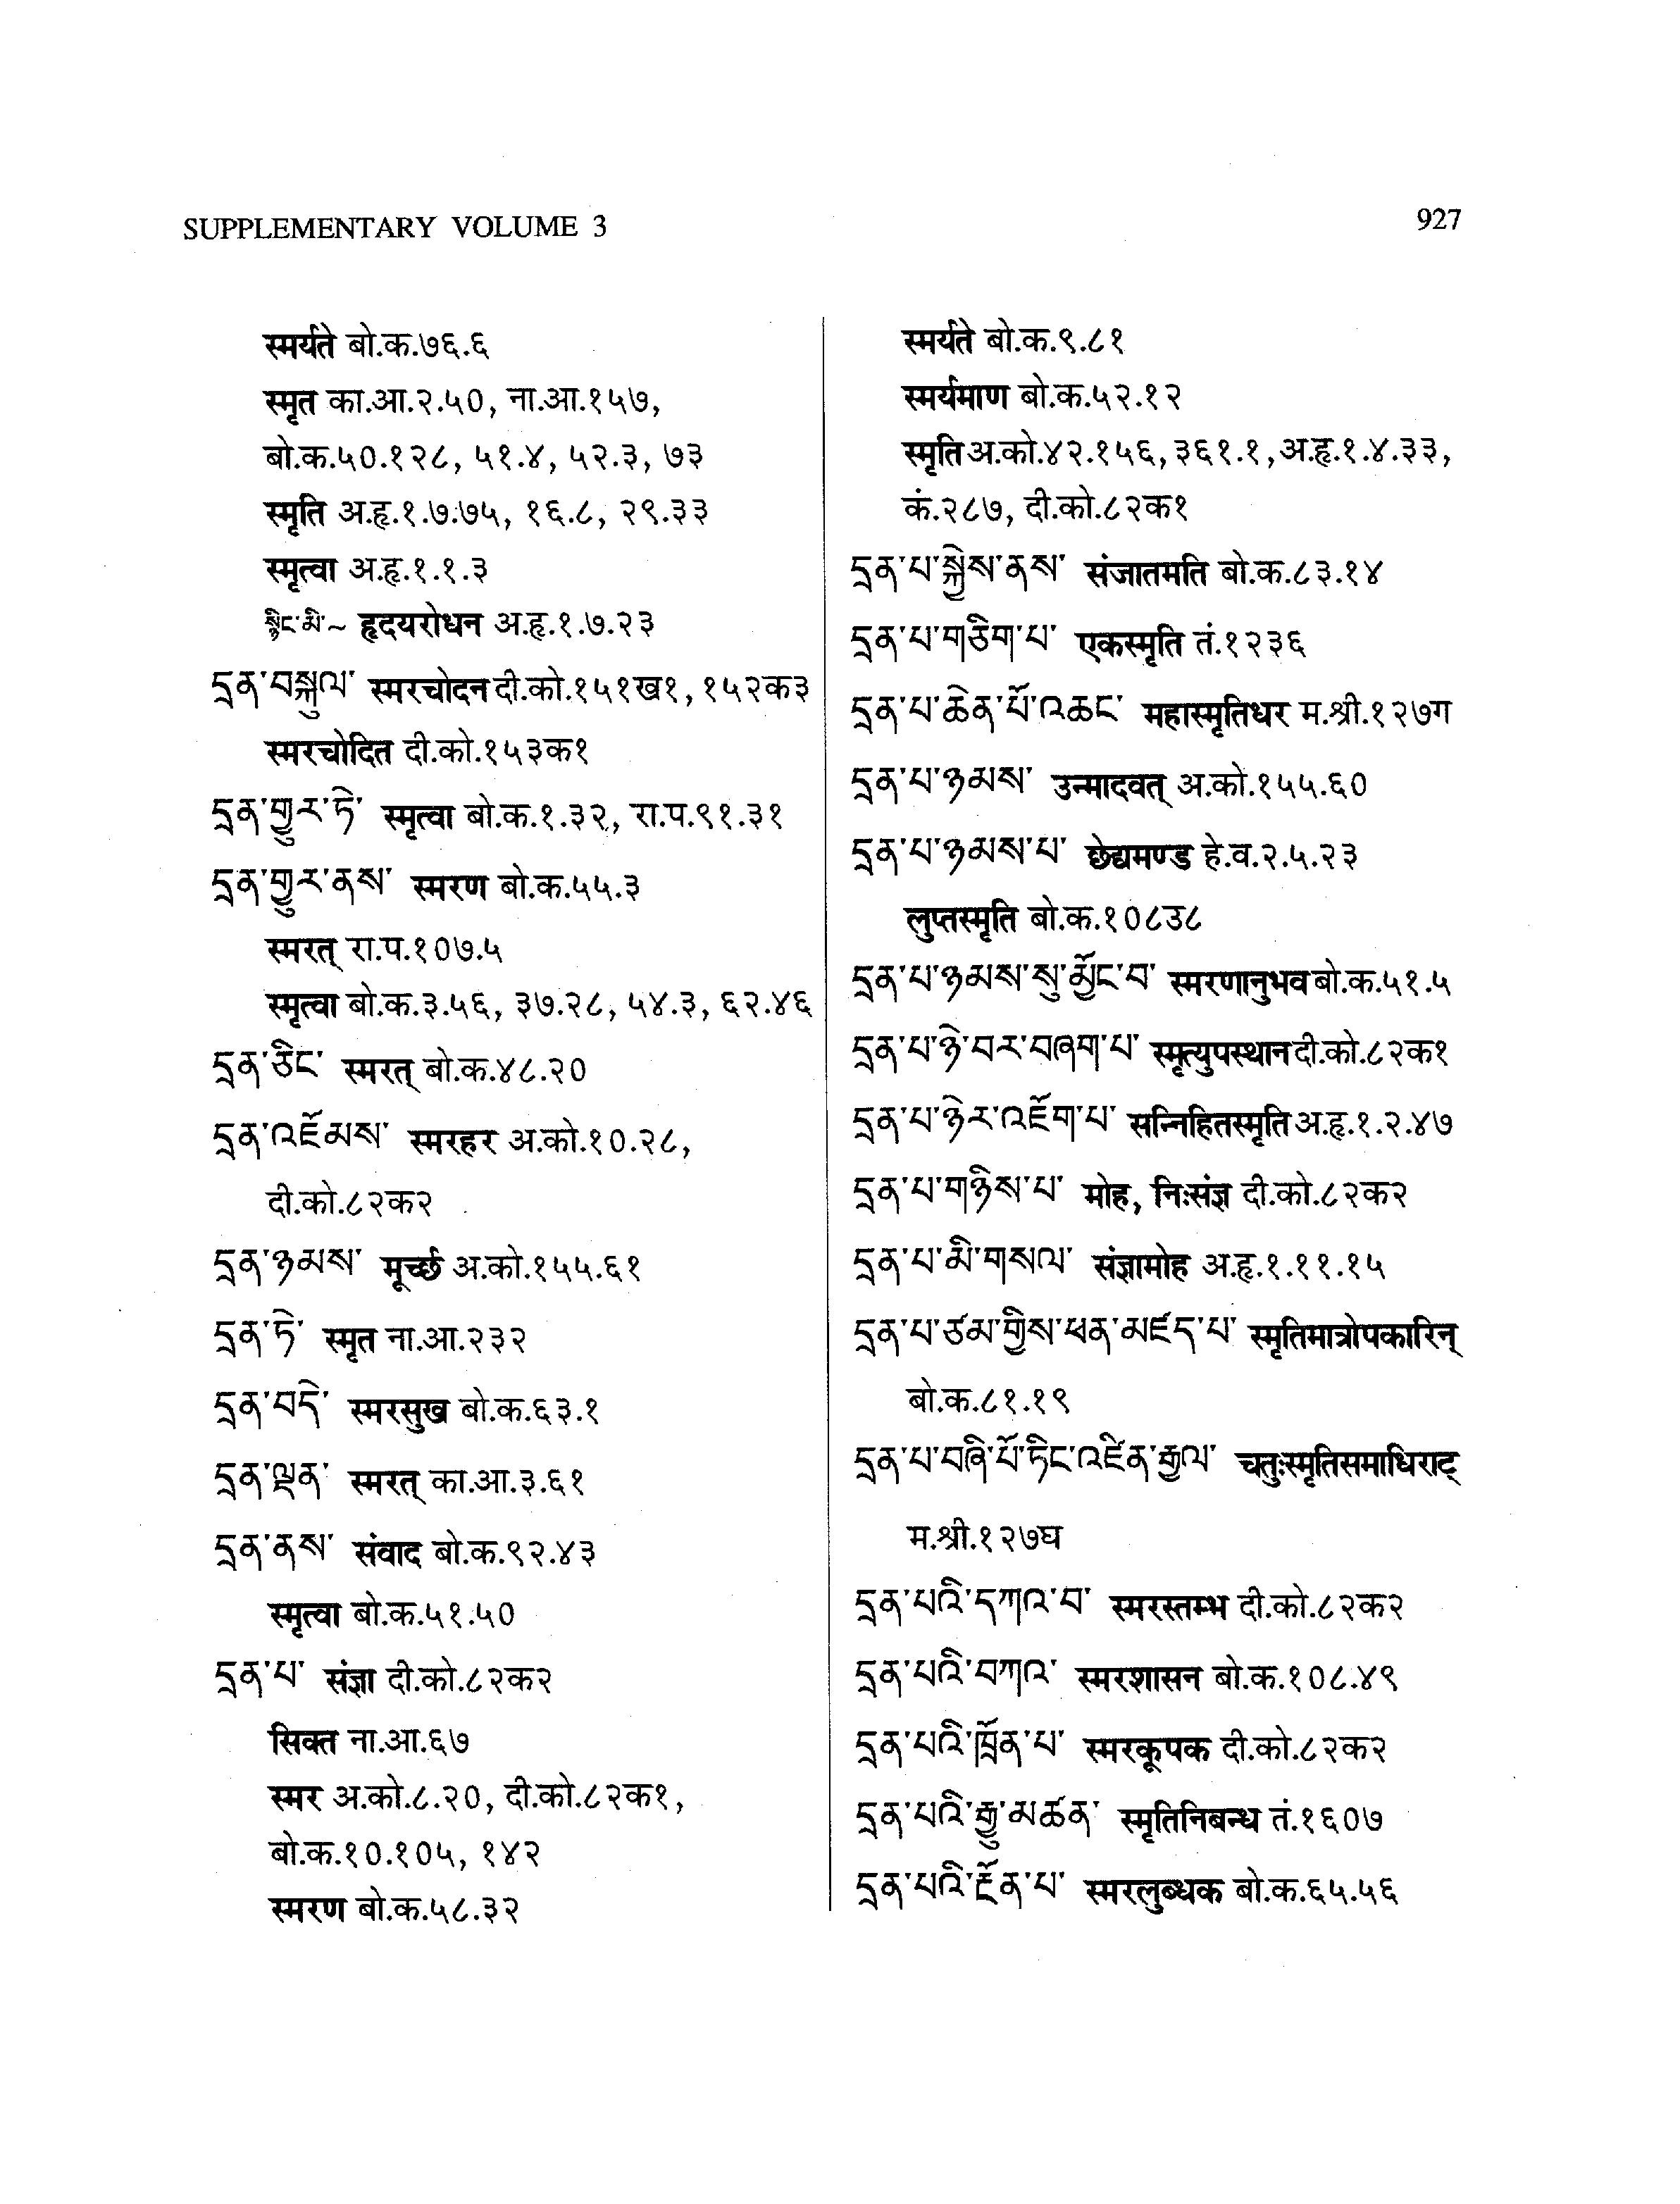 SUPPLEMENTARY VOLUME 3
927
स्मर्यते बो.क.७६.६
स्मृत का.आ.२.५०, ना.आ.१५७,
बो.क.५०.१२८, ५१.४, ५२.३, ७३
स्मृति अ.हृ.१.७.७५, १६.८, २९.३३
स्मृत्वा अ.हृ.१.१.३
སྙིང་མི་~ हृदयरोधन अ.हृ.१.७.२३
དྲན་བསྐུལ་ स्मरचोदन दी.को.१५१ख१, १५२क३
स्मरचोदित दी.को.१५३क१
དྲན་གྱུར་ཏེ་ स्मृत्वा बो.क.१.३२, रा.प.९१.३१
དྲན་གྱུར་ནས་ स्मरण बो.क.५५.३
स्मरत् रा.प.१०७.५
स्मृत्वा बो.क.३.५६, ३७.२८, ५४.३, ६२.४६
དྲན་ཅིང་ स्मरत् बो.क.४८.२०
དྲན་འཇོམས་ स्मरहर अ.को.१०.२८,
दी.को.८२क२
དྲན་ཉམས་ मूर्च्छ अ.को.१५५.६१
དྲན་ཏེ་ स्मृत ना.आ.२३२
དྲན་བདེ་ स्मरसुख बो.क.६३.१
དྲན་ལྡན་ स्मरत् का.आ.३.६१
དྲན་ནས་ संवाद बो.क.९२.४३
स्मृत्वा बो.क.५१.५०
དྲན་པ་ संज्ञा दी.को.८२क२
सिक्त ना.आ.६७
स्मर अ.को.८.२०, दी.को.८२क१,
बो.क.१०.१०५, १४२
स्मरण बो.क.५८.३२
स्मर्यते बो.क.९.८१
स्मर्यमाण बो.क.५२.१२
स्मृति अ.को.४२.१५६, ३६१.१, अ.हृ.१.४.३३,
कं.२८७, दी.को.८२क१
དྲན་པ་སྐྱེས་ནས་ संजातमति बो.क.८३.१४
དྲན་པ་གཅིག་པ་ एकस्मृति तं.१२३६
དྲན་པ་ཆེན་པོ་འཆང་ महास्मृतिधर म.श्री.१२७ग
དྲན་པ་ཉམས་ उन्मादवत् अ.को.१५५.६०
དྲན་པ་ཉམས་པ་ छेद्यमण्ड हे.व.२.५.२३
लुप्तस्मृति बो.क.१०८उ८
དྲན་པ་ཉམས་སུ་མྱོང་བ་ स्मरणानुभव बो.क.५१.५
དྲན་པ་ཉེ་བར་བཞག་པ་ स्मृत्युपस्थान दी.को.८२क१
དྲན་པ་ཉེར་འཇོག་པ་ सन्निहितस्मृति अ.हृ.१.२.४७
དྲན་པ་གཉིས་པ་ मोह, निःसंज्ञ दी.को.८२क२
དྲན་པ་མི་གསལ་ संज्ञामोह अ.हृ.१.११.१५
དྲན་པ་ཙམ་གྱིས་ཕན་མཛད་པ་ स्मृतिमात्रोपकारिन्
बो.क.८१.१९
དྲན་པ་བཞི་པོ་ཏིང་འཛིན་རྒྱལ་ चतुःस्मृतिसमाधिराट्
म.श्री.१२७घ
དྲན་པའི་དཀའ་བ་ स्मरस्तम्भ दी.को.८२क२
དྲན་པའི་བཀའ་ स्मरशासन बो.क.१०८.४९
དྲན་པའི་ཁྲོན་པ་ स्मरकूपक दी.को.८२क२
དྲན་པའི་རྒྱུ་མཚན་ स्मृतिनिबन्ध तं.१६०७
དྲན་པའི་རྔོན་པ་ स्मरलुब्धक बो.क.६५.५६